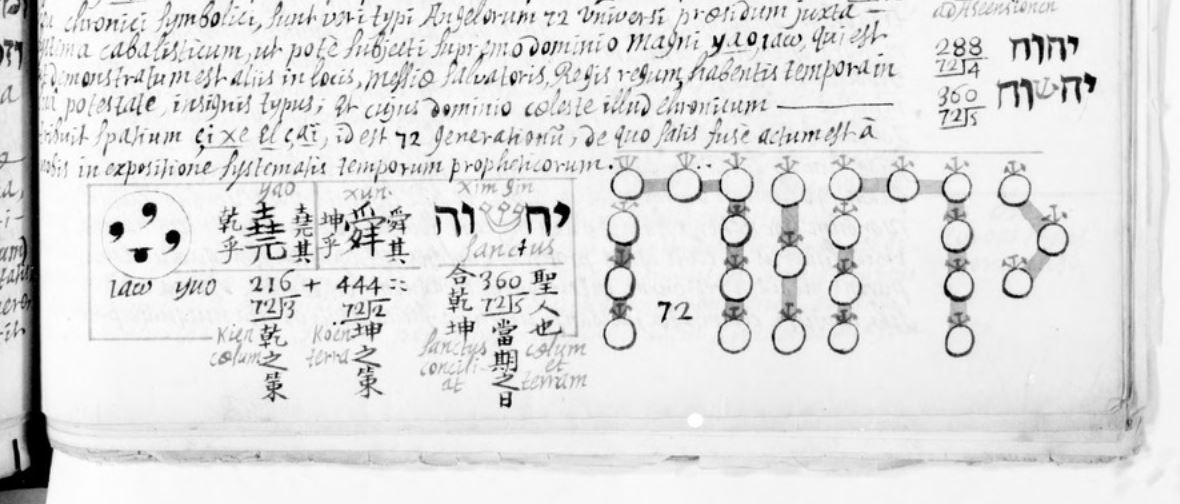 chronici symbolici, sunt veri typi Angelorum 72 universi præsidum juxta —
cabalisticum, ut potè subjecti supremo dominio magni yao, ιαω, qui est
demonstratum est aliis in locis, messiæ salvatoris, Regis regum, habentis tempora in
potestate, insignis typus; et cujus dominio cœleste illud chronicum ———
spatium çi xe el çai, id est 72 generationũ, de quo satis fusè actum est à
in expositione systematis temporum propheticorum.
ad Ascensionem
288 יהוה
72|4
360 יהשוה
72|5
yao xun xim gin
乾乎 堯 堯其 坤乎 舜 舜其 יה ש וה
sanctus
ιαω yuo 216 + 444 :: 合乾坤 360 聖人也
72|3 72|2 72|5
Kien cœlum 乾之策 Koen terra 坤之策 sanctus conciliat 當期之日 cœlum et terram
72